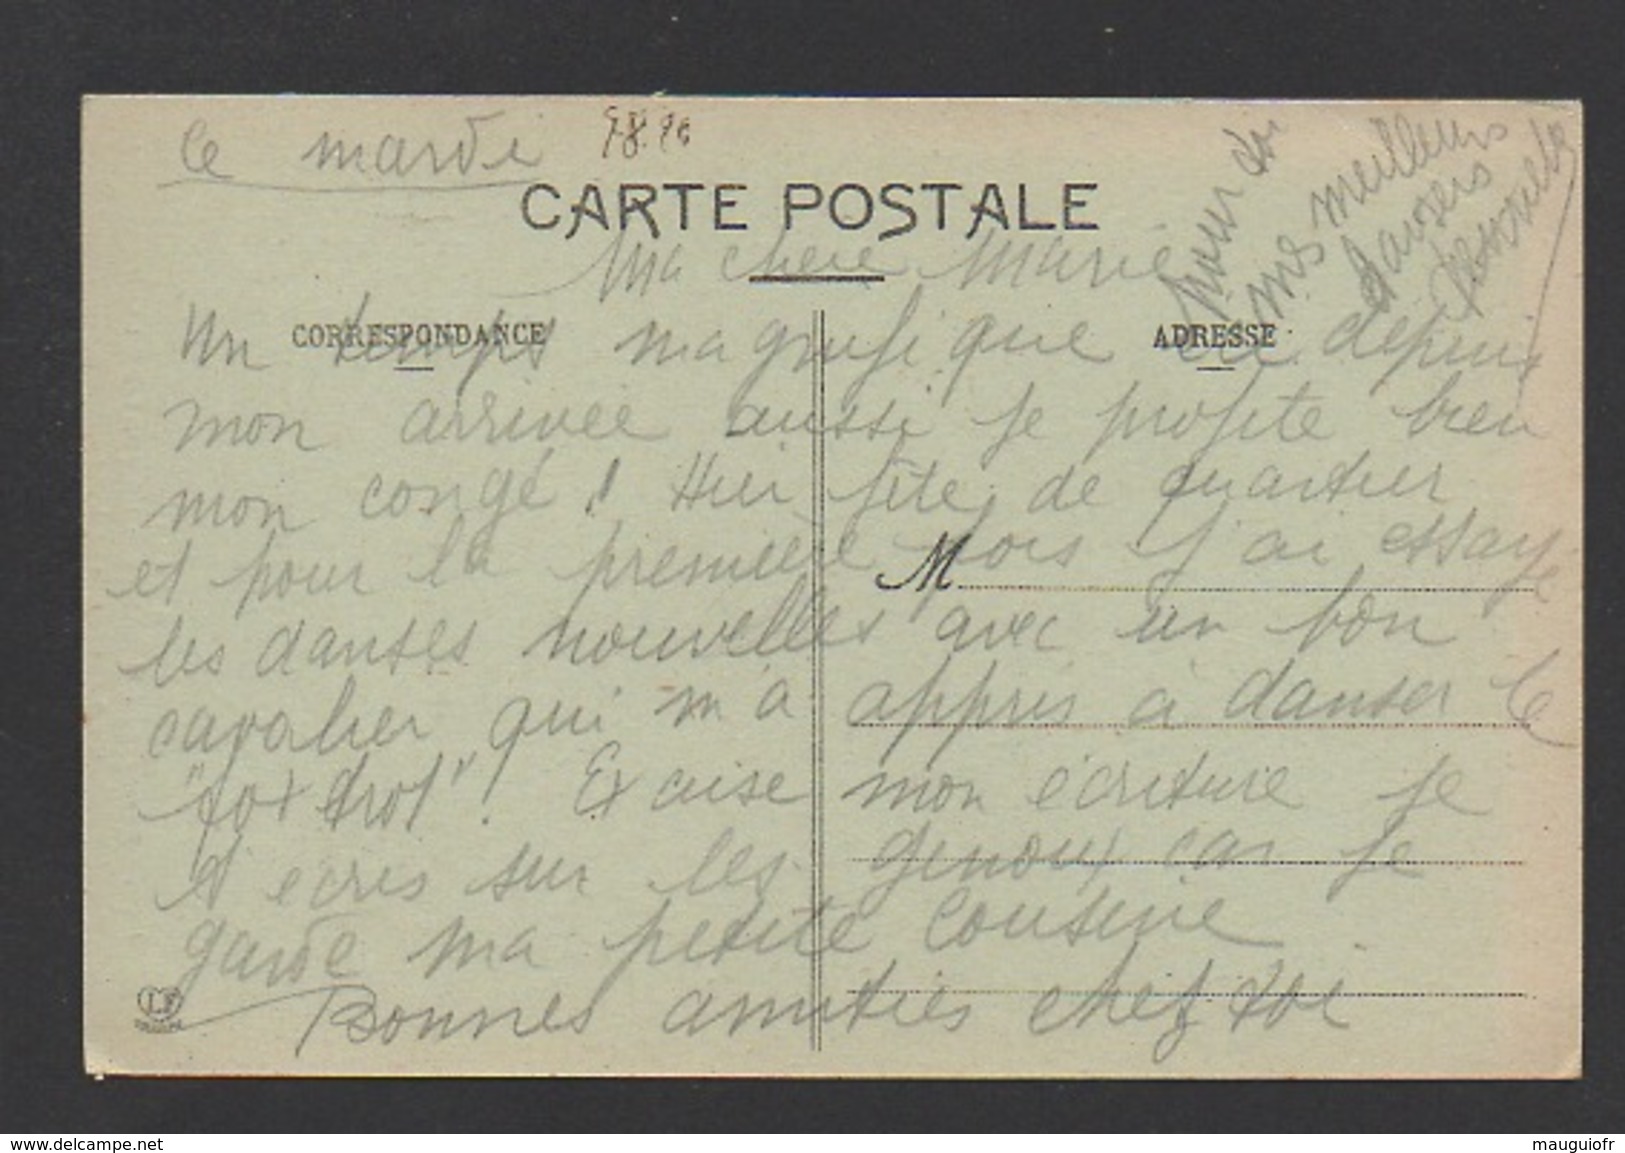 le mardi
CARTE POSTALE
Ma chère Marie
CORRESPONDANCE
ADRESSE
Un temps magnifique ici depuis
mon arrivée aussi je profite bien
mon congé ! Hier fête de quartier
et pour la première fois j'ai essayé
M
les danses nouvelles avec un bon
cavalier qui m'a appris à danser le
"fox trot". Excuse mon écriture je
t'écris sur les genoux car je
garde ma petite cousine
Bonnes amitiés chez toi
pour toi
mes meilleurs
baisers
LF
www.delcampe.net
mauguiofr